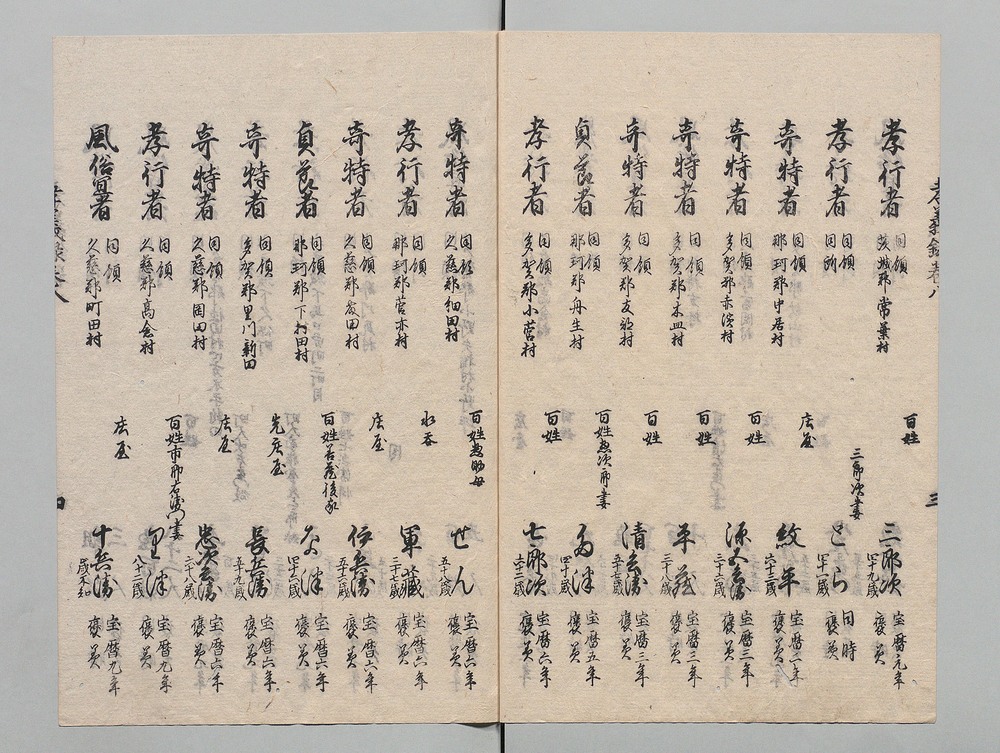 孝義録巻八
孝行者 同領 茨城郡常葉村 百姓 三郎次 四十九歳 宝暦元年 褒美
孝行者 同領 同所 三郎次妻 とら 四十二歳 同時 褒美
奇特者 同領 那珂郡中居村 庄屋 紋平 六十三歳 宝暦二年 褒美
奇特者 同領 多賀郡赤浜村 百姓 源五兵衛 三十六歳 宝暦三年 褒美
奇特者 同領 多賀郡木皿村 百姓 平蔵 三十八歳 宝暦三年 褒美
奇特者 同領 多賀郡友部村 百姓 清兵衛 五十歳 宝暦三年 褒美
貞節者 同領 那珂郡舟生村 百姓惣次郎妻 宝暦五年 褒美
孝行者 同領 多賀郡小菅村 百姓 七郎次 六十二歳 宝暦六年 褒美
三
奇特者 同領 久慈郡細田村 百姓惣助母 せん 五十八歳 宝暦六年 褒美
孝行者 同領 那珂郡菅亦村 水呑 軍蔵 三十七歳 宝暦六年 褒美
奇特者 同領 久慈郡 庄屋 伊兵衛 五十六歳 宝暦六年 褒美
貞節者 同領 那珂郡下村田村 百姓 後家 宝暦六年 褒美
奇特者 同領 多賀郡里川新田 先庄屋 長兵衛 五十九歳 宝暦六年 褒美
奇特者 同領 久慈郡岡田村 庄屋 忠次兵衛 三十八歳 宝暦六年 褒美
孝行者 同領 久慈郡高倉村 百姓市郎右衛門妻 里津 八十二歳 宝暦九年 褒美
風俗宜者 同領 久慈郡町田村 庄屋 十兵衛 歳不知 宝暦九年 褒美
孝義録巻八
四